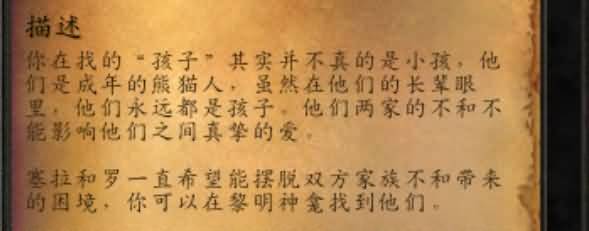 描述
你在找的“孩子”其实并不真的是小孩，他
们是成年的熊猫人，虽然在他们的长辈眼
里，他们永远都是孩子。他们两家的不和不
能影响他们之间真挚的爱。
塞拉和罗一直希望能摆脱双方家族不和带来
的困境，你可以在黎明神龛找到他们。